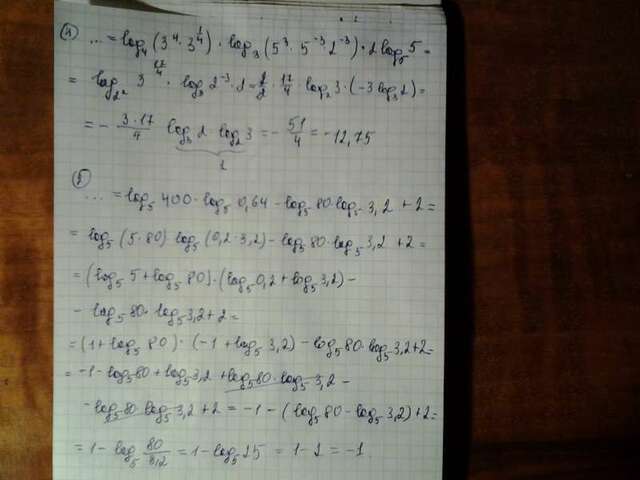 ④ ... = log₄(3⁴·3^(1/4))·log₃(5³·5⁻³·2⁻³)·2log₅5 =
= log_(2²) 3^(17/4)·log₃2⁻³·2 = 2/2·17/4·log₂3·(-3log₃2) =
= - 3·17/4 log₃2·log₂3 = - 51/4 = -12,75
1
⑤ ... = log₅400·log₅0,64 - log₅80·log₅3,2 + 2 =
= log₅(5·80)·log₅(0,2·3,2) - log₅80·log₅3,2 + 2 =
= (log₅5 + log₅80)·(log₅0,2 + log₅3,2) -
- log₅80·log₅3,2 + 2 =
= (1 + log₅80)·(-1 + log₅3,2) - log₅80·log₅3,2 + 2 =
= -1 - log₅80 + log₅3,2 + log₅80·log₅3,2 -
- log₅80·log₅3,2 + 2 = -1 - (log₅80 - log₅3,2) + 2 =
= 1 - log₅ 80/3,2 = 1 - log₅25 = 1 - 2 = -1.